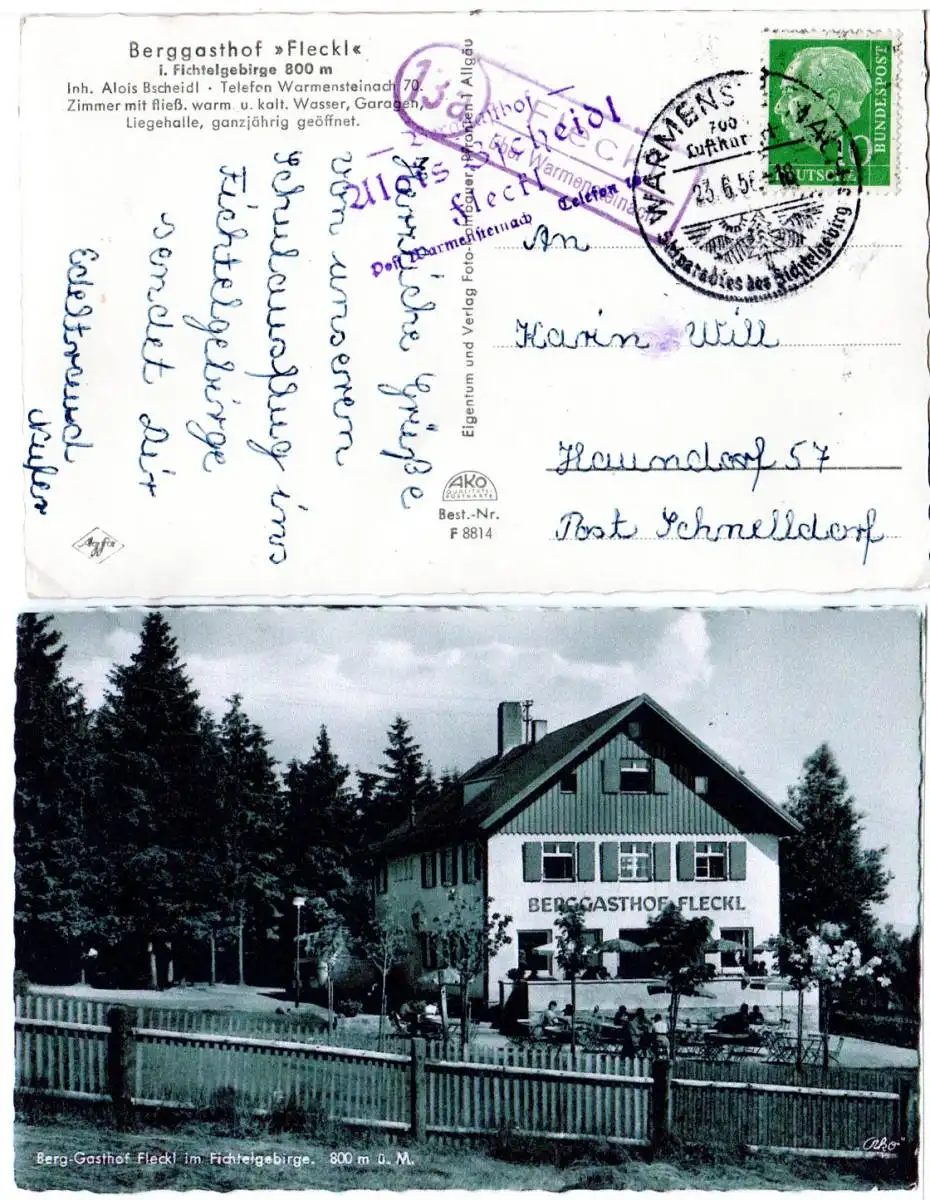 Berggasthof »Fleckl«
i. Fichtelgebirge 800 m
Inh. Alois Bscheidl · Telefon Warmensteinach 70.
Zimmer mit fließ. warm. u. kalt. Wasser, Garagen,
Liegehalle, ganzjährig geöffnet.
13a
FLECKL
über Warmensteinach
Berggasthof
Alois Bscheidl
Fleckl
Post Warmensteinach Telefon
WARMENS
700
Luftkur
23.6.56.-18
Skiparadies des Fichtelgebirg
10
BUNDESPOST
DEUTSCHE
Herzliche Grüße
von unserem
Schulausflug ins
Fichtelgebirge
sendet dir
Edeltraud
Eigentum und Verlag Foto- Pfronten i Allgäu
AKO
QUALITÄTS
POSTKARTE
Best.-Nr.
F 8814
Agfa
An
Karin Will
Haundorf 57
Post Schnelldorf
BERGGASTHOF FLECKL
Berg-Gasthof Fleckl im Fichtelgebirge. 800 m ü. M.
„Ako"